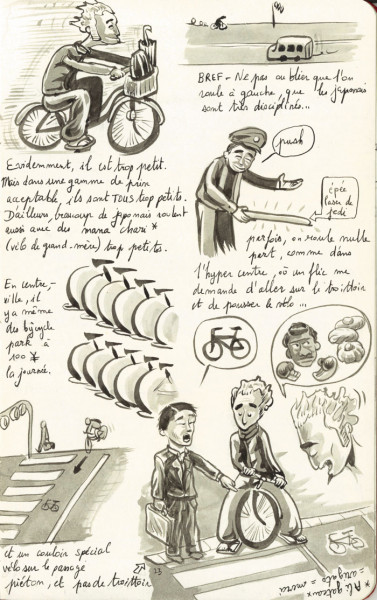 BREF - Ne pas oublier que l'on
roule à gauche, que les japonais
sont très disciplinés...
Evidemment, il est trop petit.
Mais dans une gamme de prix
acceptable, ils sont TOUS trop petits.
D'ailleurs, beaucoup de japonais roulent
aussi avec des mama chari *
(vélo de grand-mère) trop petits.
push
épée
laser de
jedi
parfois, on roule nulle
part, comme dans
l'hyper centre, où un flic me
demande d'aller sur le trottoir
et de pousser le vélo...
En centre-
ville, il
y a même
des bicycle
park à
100 ¥
la journée.
et un couloir spécial
vélo sur le passage
piéton, et pas de trottoir
23
* Ali gateaux
= arigato = merci